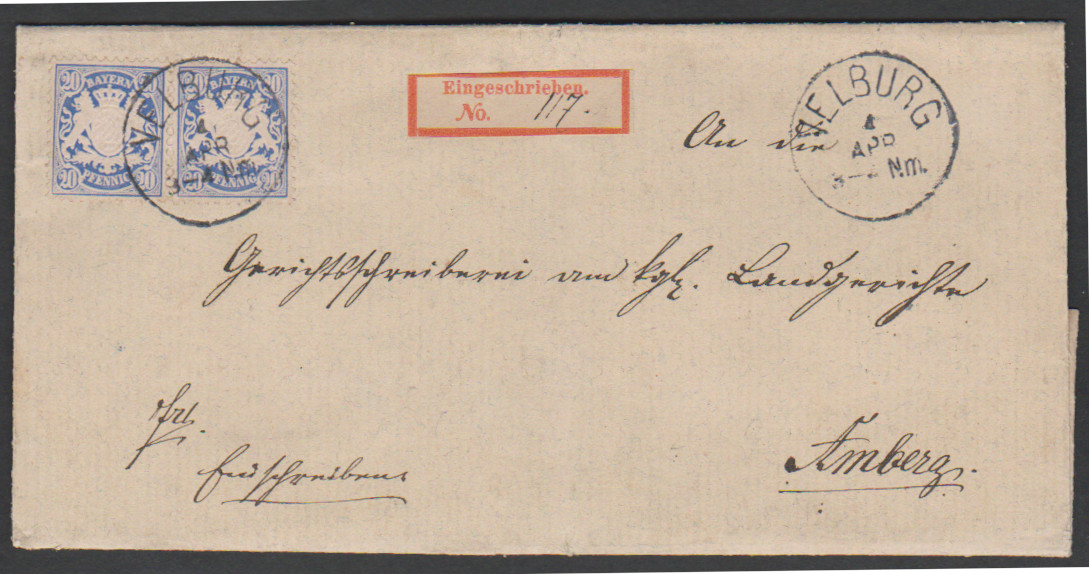 20 BAYERN 20
20 PFENNIG 20
20 BAYERN 20
20 PFENNIG 20
VELBURG
4
APR
3-4 Nm.
Eingeschrieben.
No. 117.
VELBURG
4
APR
3-4 N.m.
An die
Gerichtsschreiberei am kgl. Landgerichte
Einschreiben.
Amberg.